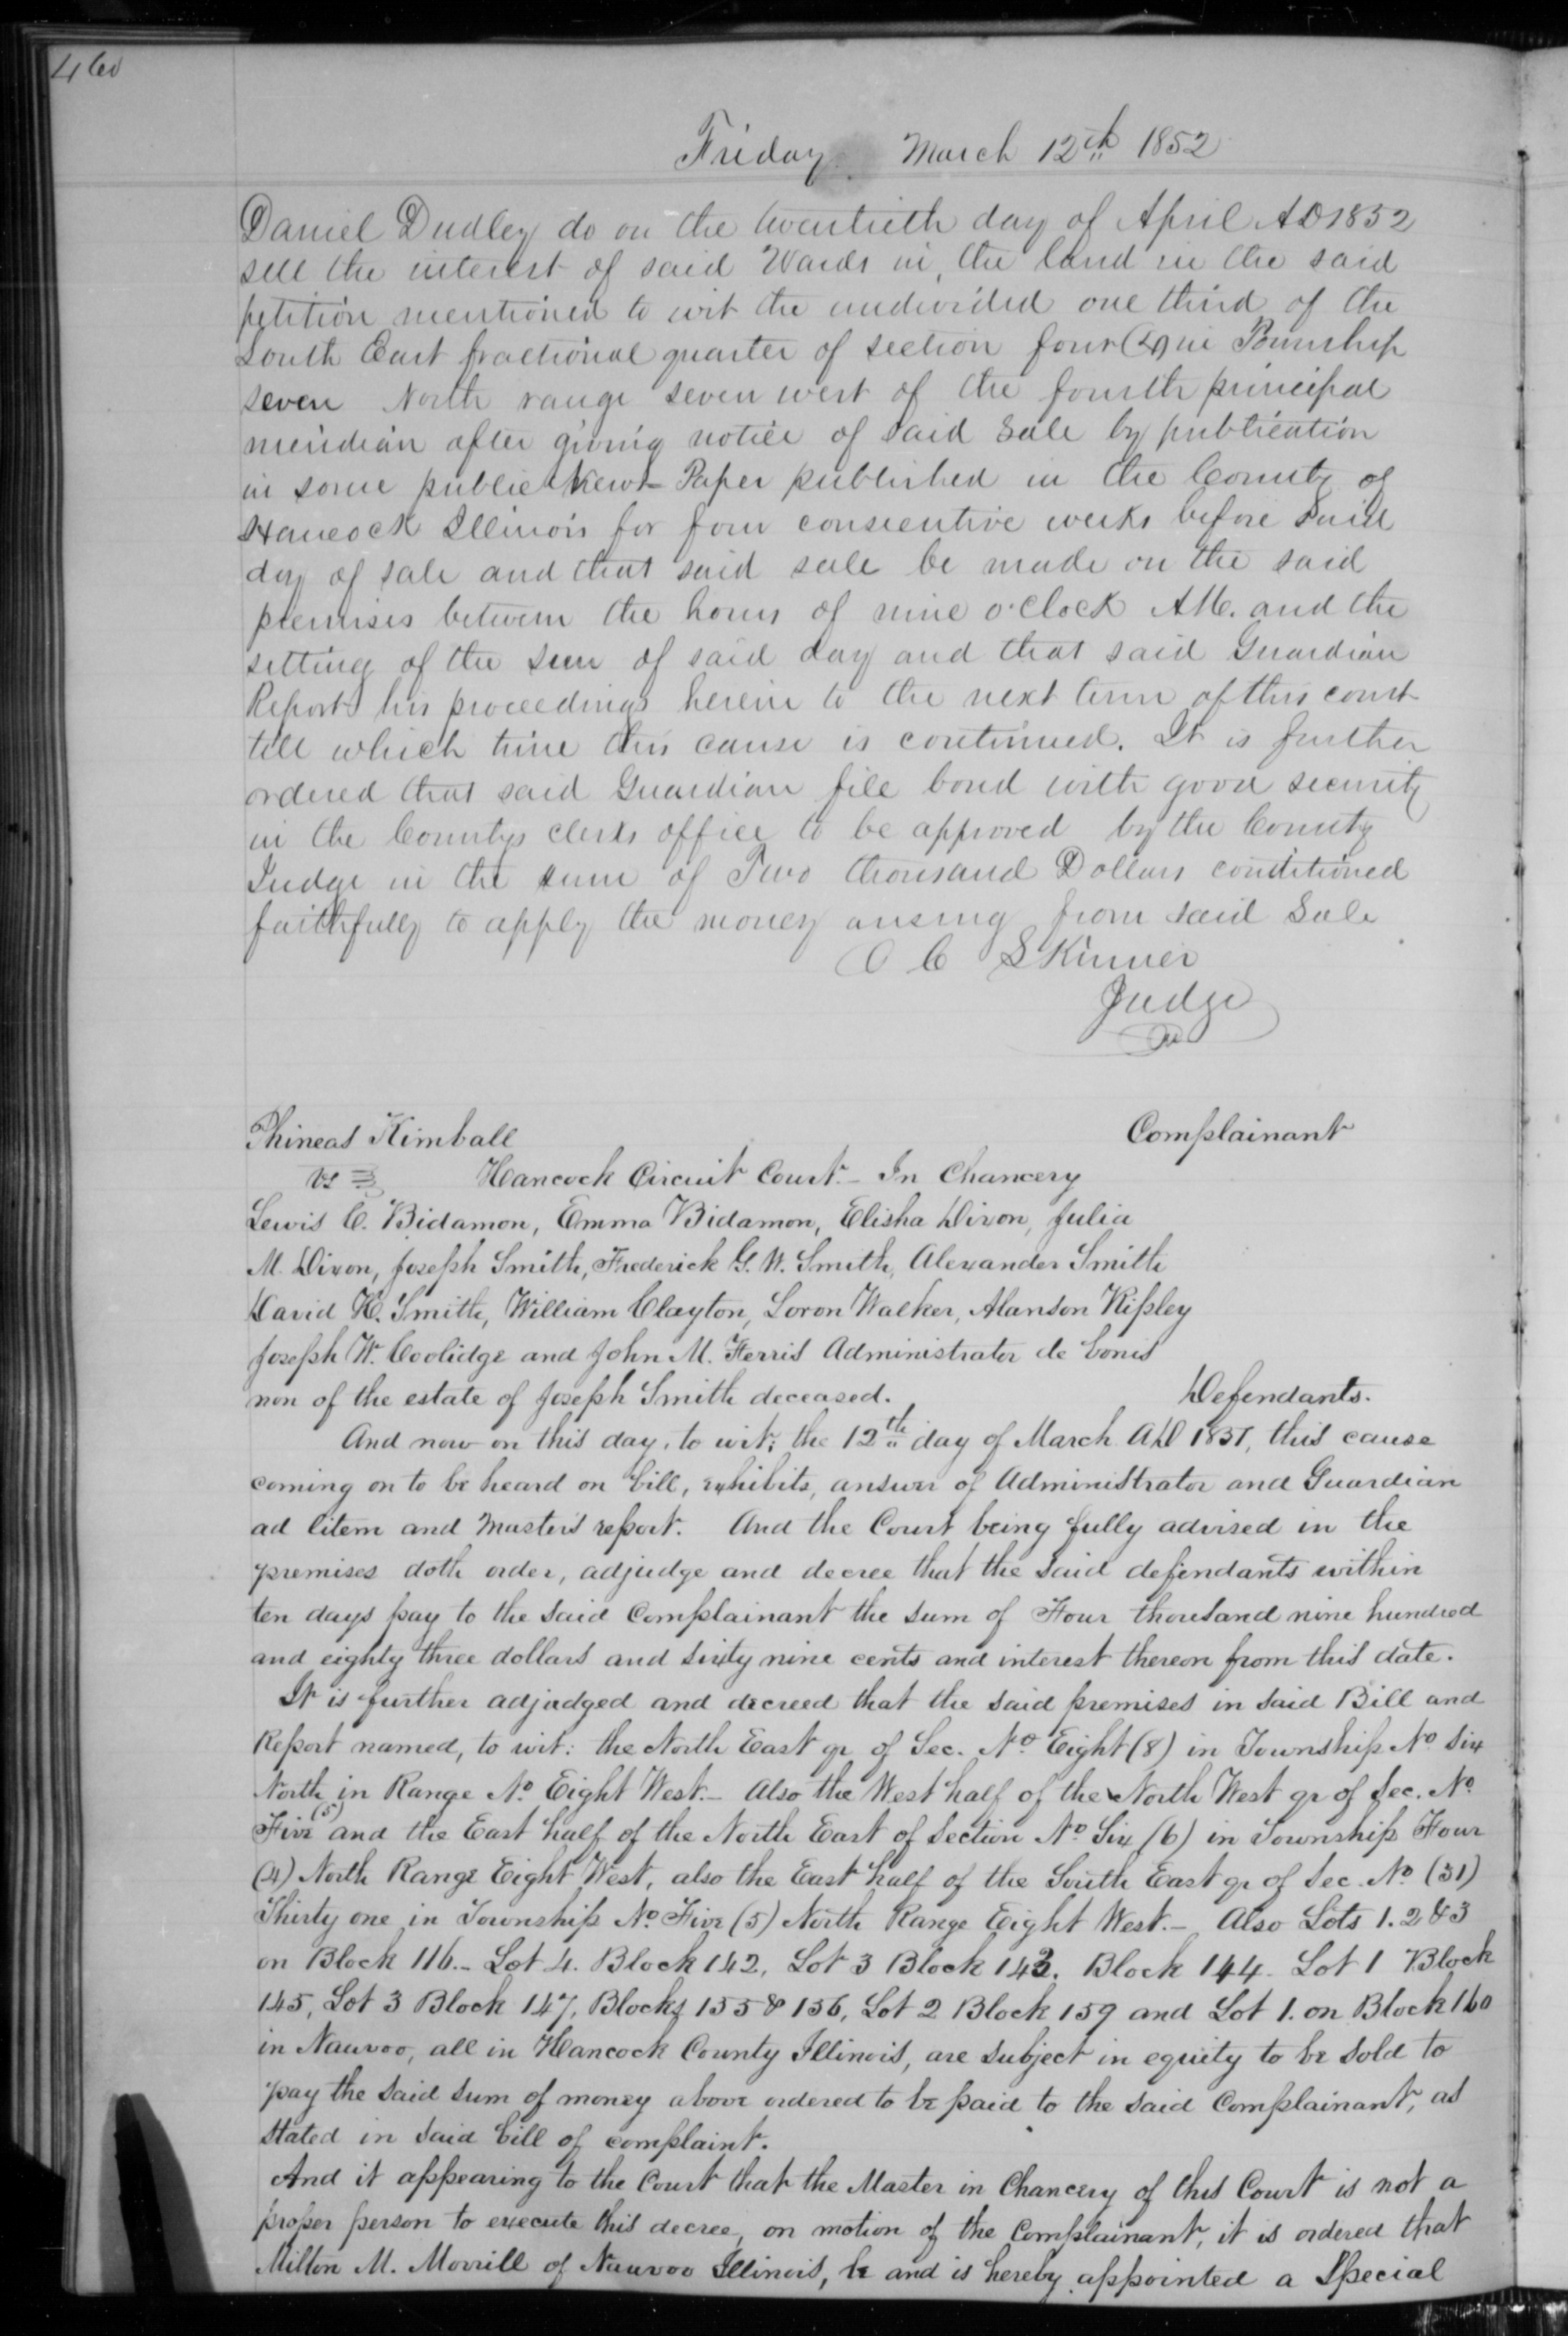 460
Friday March 12th 1852
Daniel Dudley do on the twentieth day of April AD 1852
sell the interest of said Wards in, the land in the said
petition mentioned to wit the undivided one third of the
South East fractional quarter of section four (4) in Township
seven North range seven west of the fourth principal
meridian after giving notice of said Sale by publication
in some public News Paper published in the County of
Hancock Illinois for four consecutive weeks before said
day of sale and that said sale be made on the said
premises between the hours of nine o'clock AM. and the
setting of the sun of said day and that said Guardian
Report his proceedings herein to the next term of this court
till which time this cause is continued. It is further
ordered that said Guardian file bond with good security
in the Countys clerks office to be approved by the County
Judge in the sum of Two thousand Dollars conditioned
faithfully to apply the money arising from said Sale
O C Skinner
Judge
Phineas Kimball Complainant
vs Hancock Circuit Court - In Chancery
Lewis C. Bidamon, Emma Bidamon, Elisha Dixon, Julia
M. Dixon, Joseph Smith, Frederick G. W. Smith, Alexander Smith
David H. Smith, William Clayton, Loron Walker, Alanson Ripley
Joseph W. Coolidge and John M. Ferris Administrator de bonis
non of the estate of Joseph Smith deceased. Defendants.
And now on this day, to wit; the 12th day of March AD 1851, this cause
coming on to be heard on bill, exhibits, answer of Administrator and Guardian
ad litem and Master's report. And the Court being fully advised in the
premises doth order, adjudge and decree that the said defendants within
ten days pay to the said Complainant the sum of Four thousand nine hundred
and eighty three dollars and sixty nine cents and interest thereon from this date.
It is further adjudged and decreed that the said premises in said Bill and
Report named, to wit: the North East qr of Sec. No Eight (8) in Township No Six
North in Range No Eight West.- Also the West half of the North West qr of Sec. No
Five (5) and the East half of the North East of Section No Six (6) in Township Four
(4) North Range Eight West, also the East half of the South East qr of Sec. No (31)
Thirty one in Township No Five (5) North Range Eight West.- Also Lots 1. 2 & 3
on Block 116.- Lot 4. Block 142, Lot 3 Block 143. Block 144. Lot 1 Block
145, Lot 3 Block 147, Blocks 155 & 156, Lot 2 Block 159 and Lot 1. on Block 160
in Nauvoo, all in Hancock County Illinois, are subject in equity to be sold to
pay the said sum of money above ordered to be paid to the said Complainant, as
stated in said bill of complaint.
And it appearing to the Court that the Master in Chancery of this Court is not a
proper person to execute this decree, on motion of the Complainant, it is ordered that
Milton M. Morrill of Nauvoo Illinois, be and is hereby appointed a Special